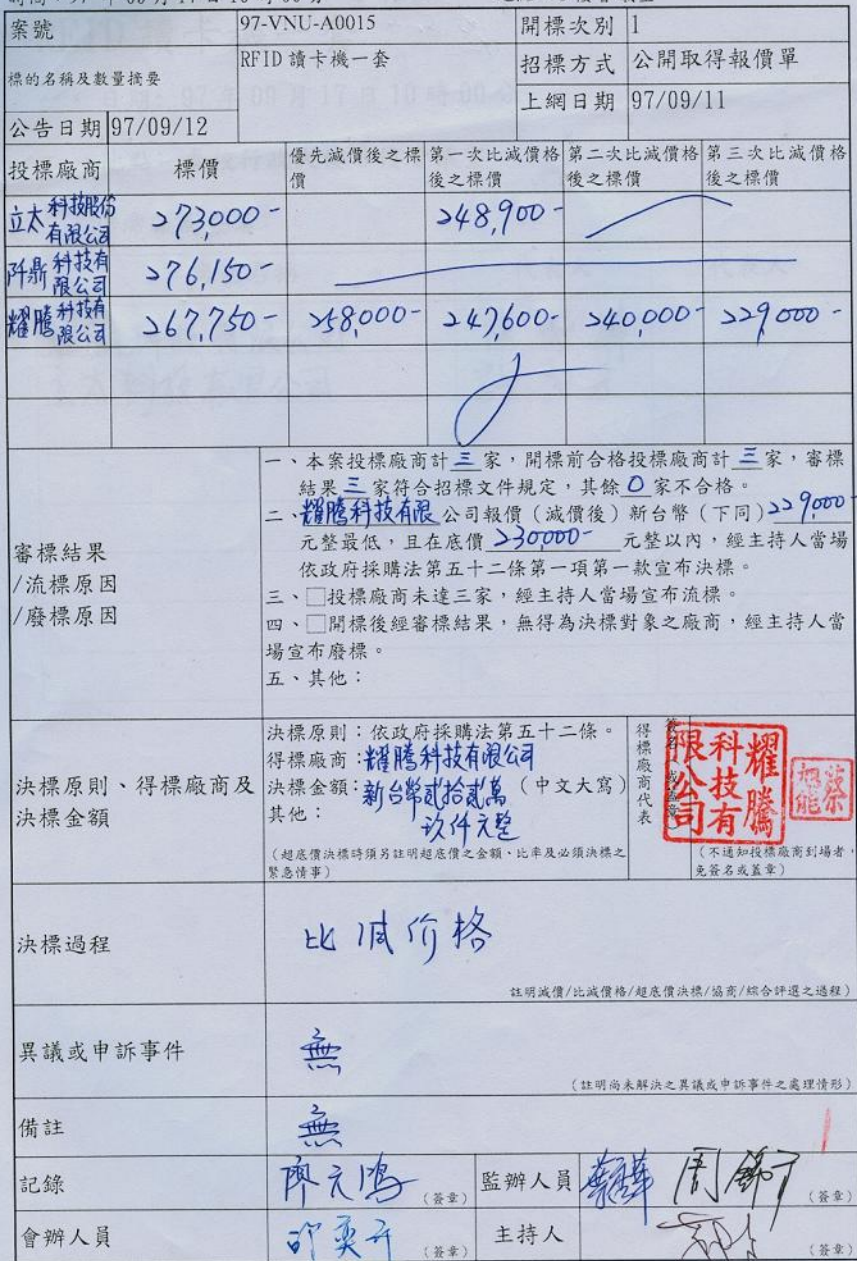 案號 97-VNU-A0015 開標次別 1
標的名稱及數量摘要 RFID 讀卡機一套 招標方式 公開取得報價單
上網日期 97/09/11
公告日期 97/09/12
投標廠商 標價 優先減價後之標價 第一次比減價格後之標價 第二次比減價格後之標價 第三次比減價格後之標價
立太科技股份有限公司 273,000- 248,900-
阡鼎科技有限公司 276,150-
耀騰科技有限公司 267,750- 258,000- 247,600- 240,000- 229,000-
審標結果
/流標原因
/廢標原因
一、本案投標廠商計三家,開標前合格投標廠商計三家,審標
結果三家符合招標文件規定,其餘0家不合格。
二、耀騰科技有限公司報價(減價後)新台幣(下同)229,000
元整最低,且在底價230,000-元整以內,經主持人當場
依政府採購法第五十二條第一項第一款宣布決標。
三、□投標廠商未達三家,經主持人當場宣布流標。
四、□開標後經審標結果,無得為決標對象之廠商,經主持人當
場宣布廢標。
五、其他:
決標原則、得標廠商及
決標金額
決標原則:依政府採購法第五十二條。
得標廠商:耀騰科技有限公司
決標金額:新台幣貳拾貳萬(中文大寫)
玖仟元整
其他:
(超底價決標時須另註明超底價之金額、比率及必須決標之
緊急情事)
得標廠商代表
耀騰科技有限公司
(不通知投標廠商到場者,
免簽名或蓋章)
決標過程 比減价格
註明減價/比減價格/超底價決標/協商/綜合評選之過程)
異議或申訴事件 無
(註明尚未解決之異議或申訴事件之處理情形)
備註 無
記錄 廖元鴻 (簽章) 監辦人員 (簽章)
會辦人員 (簽章) 主持人 (簽章)